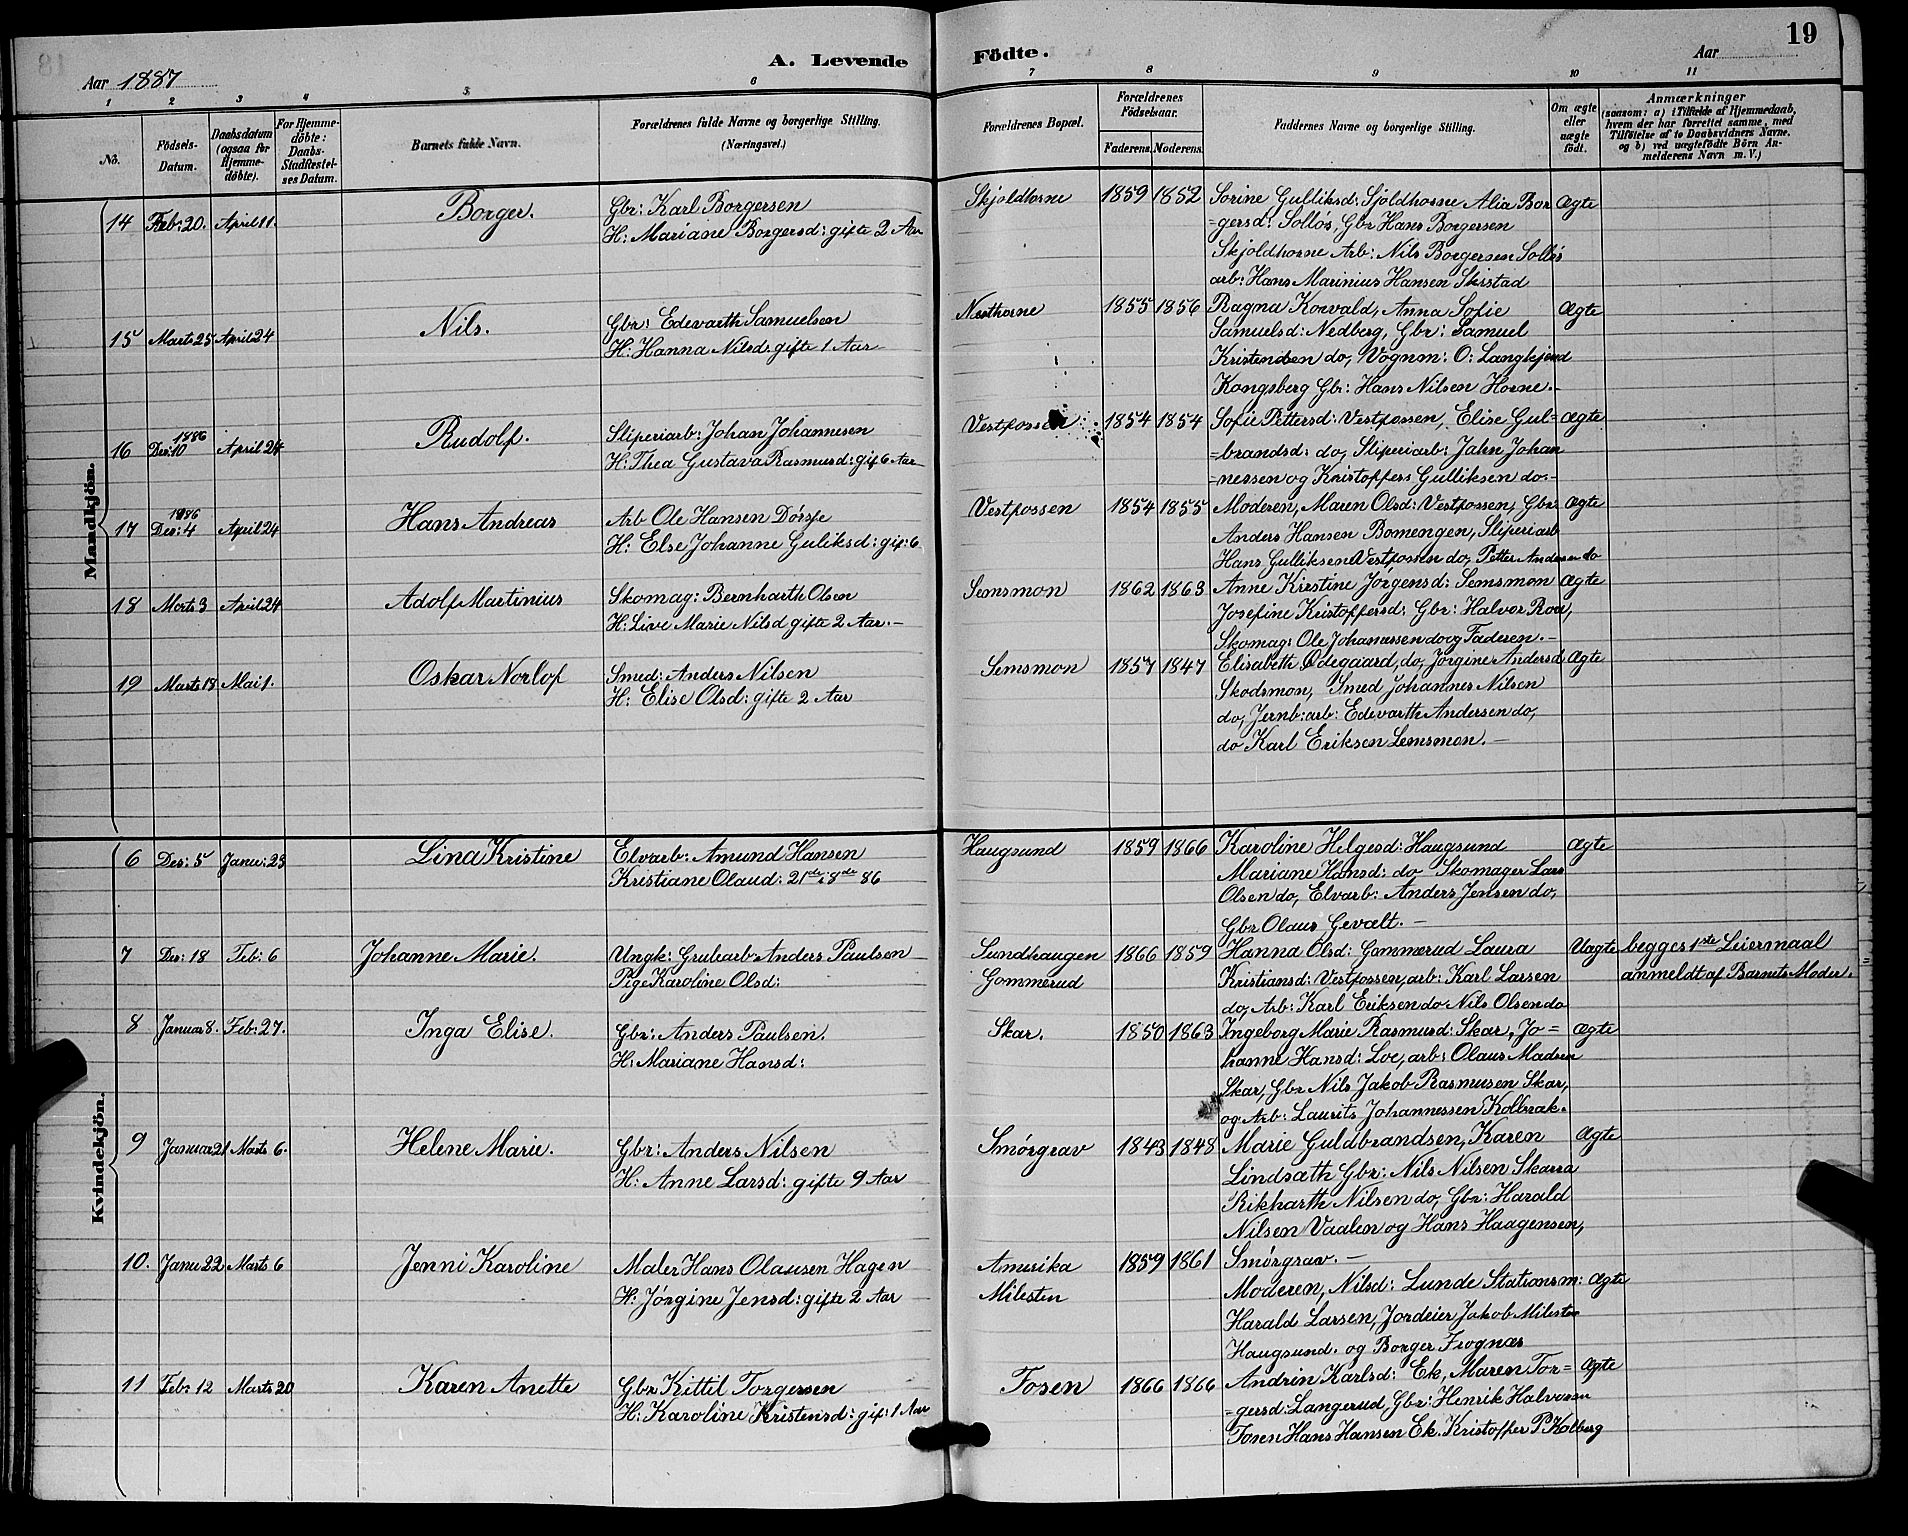 19
A. Levende Födte.
Aar 1887
Aar
1 2 3 4 5 6 7 8 9 10 11
No.
Födsels-Datum.
Daabsdatum (ogsaa for Hjemme-döbte).
For Hjemme-döbte: Daabs-Stadfæstel-ses Datum.
Barnets fulde Navn.
Forældrenes fulde Navne og borgerlige Stilling. (Næringsvei.)
Forældrenes Bopæl.
Forældrenes Födselsaar.
Faderens. Moderens.
Faddernes Navne og borgerlige Stilling.
Om ægte eller uægte födt.
Anmærkninger
(saasom: a) i Tilfælde af Hjemmedaab, hvem der har forrettet samme, med Tilföielse af to Daabsvidners Navne, og b) ved uægtefödte Börn An-melderens Navn m. V.)
Mandkjön.
14 Feb: 20. April 11. Borger. Gbr: Karl Borgersen Skjoldhorne 1859 1852 Sorine Gulliksd: Sjoldhorne Alia Bor Ægte
H: Mariane Borgersd: gifte 2 Aar =gersd: Solløs, Gbr Hans Borgersen
Skjoldhorne Arb: Nils Borgersen Solløs
arb: Hans Marinius Hansen Skistad
15 Marts 25 April 24 Nils. Gbr: Edevarth Samuelsen Nesthorne 1855 1856 Ragna Korvald, Anna Sofie Ægte
H: Hanna Nilsd: gifte 1 Aar Samuelsd: Nedberg, Gbr: Samuel
Kristensen do, Vognm: O: Langkjend
Kongsberg Gbr: Hans Nilsen Horne.-
16 1886 Des: 10 April 24 Rudolf. Sliperiarb: Johan Johannesen Vestfossen 1854 1854 Sofie Pettersd: Vestfossen, Elise Gul= Ægte
H: Thea Gustava Rasmusd: gif 6 Aar =brandsd: do, Sliperiarb: Jahn Johan
=nessen og Kristoffers Gulliksen do.-
17 1886 Des: 4 April 24 Hans Andreas Arb Ole Hansen Dørsfe Vestfossen 1854 1855 Moderen, Maren Olsd: Vestfossen, Gbr: Ægte
H: Else Johanne Guliksd: gif: 6 Anders Hansen Bomengen, Sliperiarb
Hans Gulliksen Vestfossen do, Petter Andersen do
18 Marts 3 April 24 Adolf Martinius Skomag: Bernharth Olsen Semsmon 1862 1863 Anne Kirstine Jørgensd: Semsmon Ægte
H: Live Marie Nilsd gifte 2 Aar.- Josefine Kristoffersd: Gbr: Halvor Roa,
Skomag: Ole Johanassen do og Faderen.-
19 Marts 18 Mai 1. Oskar Norlof Smed: Anders Nilsen Semsmon 1857 1847 Elisabeth Ødegaard, do, Jørgine Andersd Ægte
H: Elise Olsd: gifte 2 Aar Skodsmon, Smed Johannes Nilsen
do, Jernb: arb: Edevarth Andersen do,
do Karl Eriksen Semsmon.-
Kvindekjön.
6 Des: 5 Janu: 23 Lina Kristine Elvarb: Amund Hansen Haugsund 1859 1866 Karoline Helgesd: Haugsund Ægte
Kristiane Olausd: 21de i 8de 86 Mariane Hansd: do Skomager Lars
Olsen do, Elvarb: Anders Jensen do,
Gbr Olaus Gevælt.-
7 Des: 18 Feb: 6 Johanne Marie. Ungk: Grubearb Anders Paulsen Sundhaugen 1866 1859 Hanna Olsd: Gommerud Laura Uægte begges 1ste Leiermaal
Pige Karoline Olsd: Gommerud Kristiansd: Vestfossen, arb: Karl Larsen anmeldt af Barnets Moder.
do, Arb: Karl Eriksen do Nils Olsen do
8 Januar 8. Feb: 27. Inga Elise. Gbr: Anders Paulsen. Skar. 1850 1863 Ingeborg Marie Rasmusd: Skar, Jo= Ægte
H: Mariane Hansd: hanne Hansd: Loe, arb: Olaus Madsen
Skar, Gbr Nils Jakob Rasmusen Skar,
og Arb: Laurits Johannessen Kolbræk.
9 Januar 21 Marts 6. Helene Marie. Gbr: Anders Nilsen Smørgrav 1843 1848 Marie Guldbrandsen, Karen Ægte
H: Anne Larsd: gifte 9 Aar Lindsæth Gbr: Nils Nilsen Skarra
Rikharth Nilsen do, Gbr: Harald
Nilsen Vaalen og Hans Haagensen,
10. Janu 22 Marts 6 Jenni Karoline Maler Hans Olausen Hagen Amerika 1859 1861 Smørgrav.-
H: Jørgine Jensd: gifte 2 Aar Milesten Moderen, Nilsd: Lunde Stationsm: Ægte
Harald Larsen, Jordeier Jakob Milesten
Haugsund. og Borger Frognæs
11 Feb: 12 Marts 20 Karen Anette Gbr Kittil Torgersen Fosen 1866 1866 Andrin Karlsd: Ek, Maren Tor= Ægte
H: Karoline Kristensd: gif: 1 Aar =gersd: Langerud, Gbr: Henrik Halvorsen
Fosen Hans Hansen Ek. Kristoffer P. Kolberg